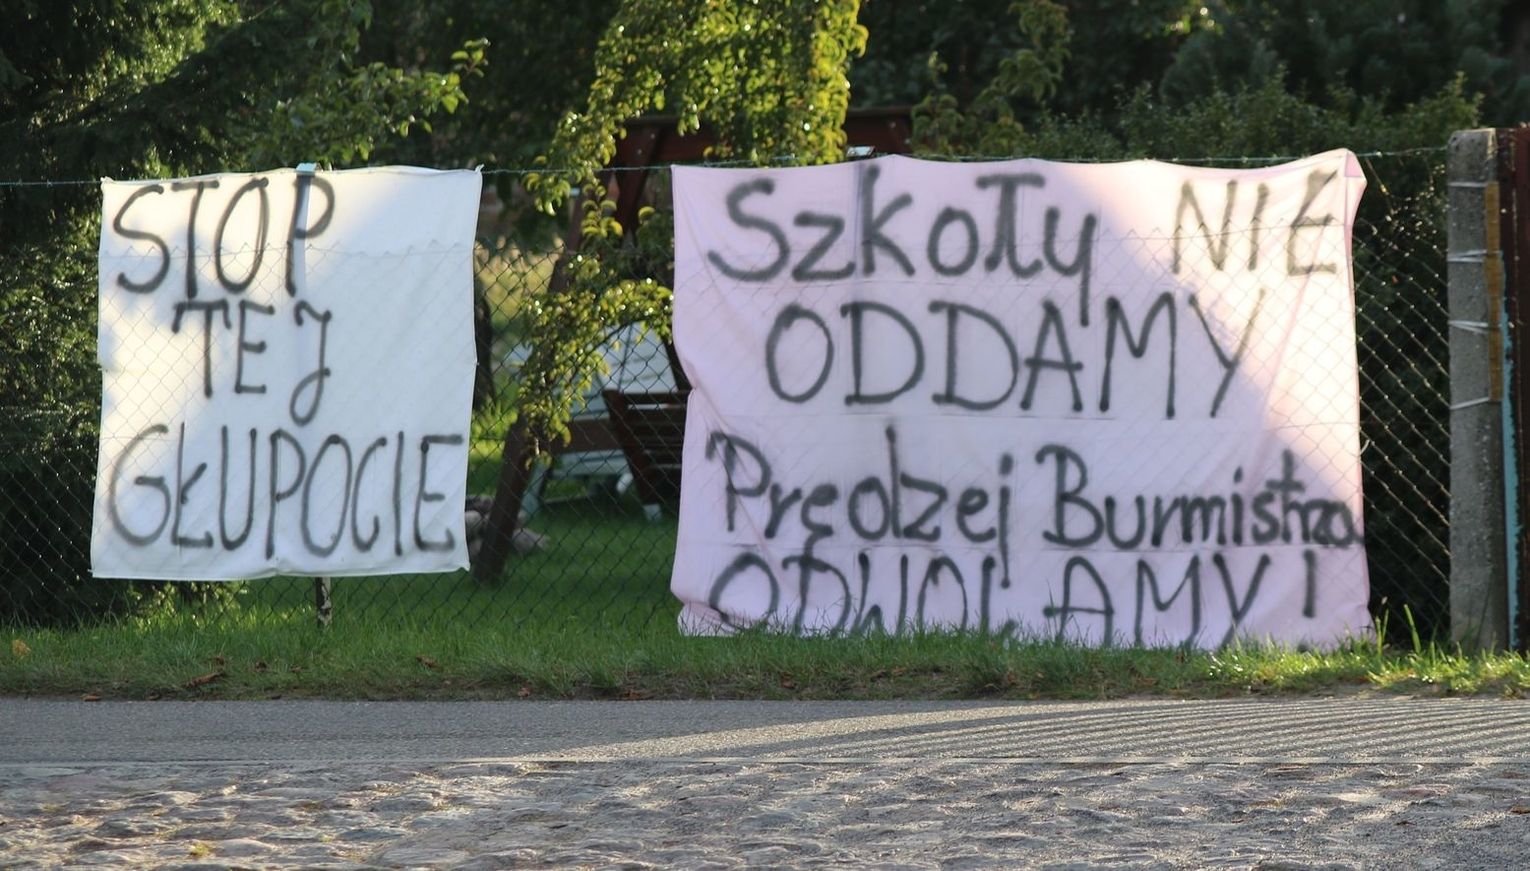 STOP
TEJ
GŁUPOCIE
Szkoły NIE
ODDAMY
Prędzej Burmistrza
ODWOŁAMY!